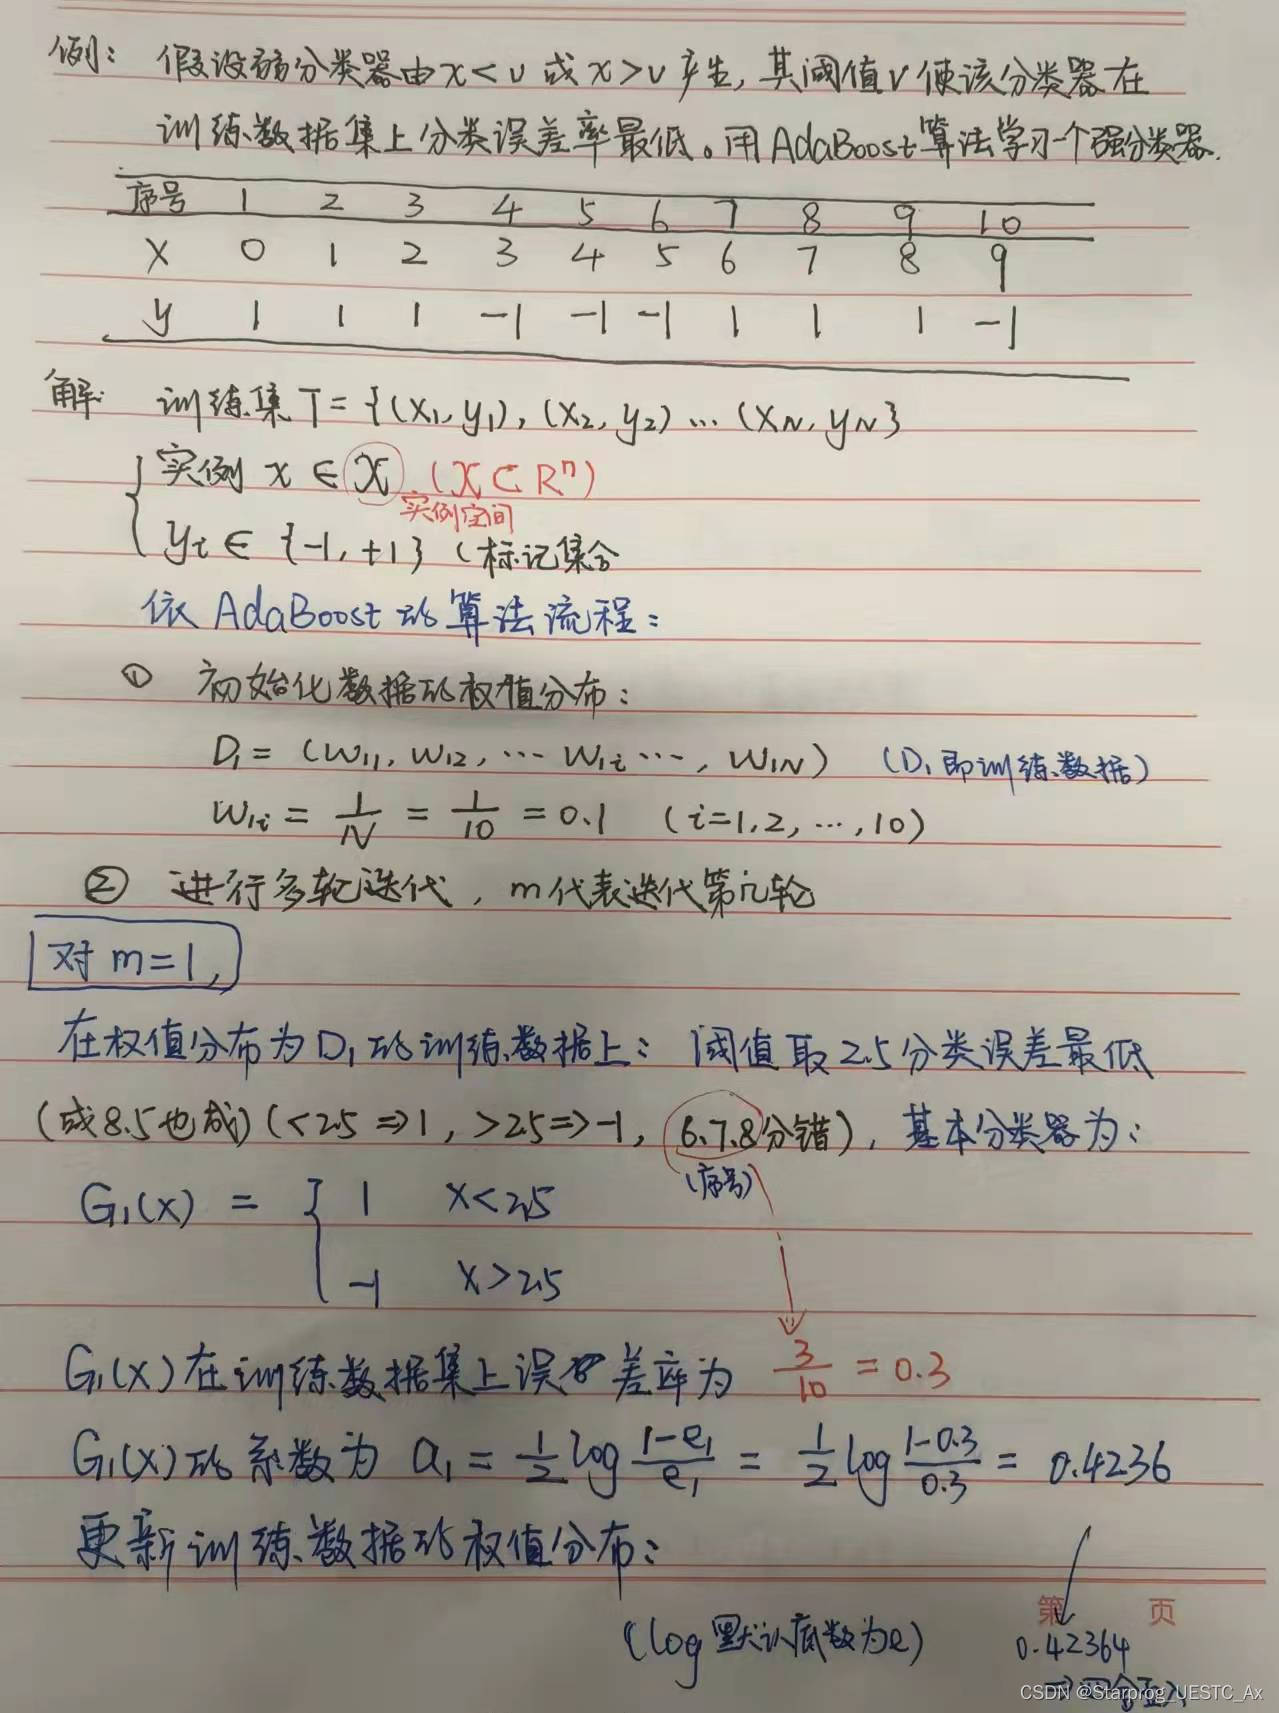 例： 假设弱分类器由x<v或x>v产生，其阈值v使该分类器在
训练数据集上分类误差率最低。用AdaBoost算法学习一个强分类器.
序号 1 2 3 4 5 6 7 8 9 10
X 0 1 2 3 4 5 6 7 8 9
y 1 1 1 -1 -1 -1 1 1 1 -1
解: 训练集 T={(x₁,y₁),(x₂,y₂)…(x_N,y_N}
实例 x∈X (X⊂Rⁿ)
实例空间
yᵢ∈{-1,+1} (标记集合
依AdaBoost的算法流程：
① 初始化数据的权值分布：
D₁=(w₁₁,w₁₂,…w₁ᵢ…,w₁N) (D₁即训练数据)
w₁ᵢ = 1/N = 1/10 = 0.1 (i=1,2,…,10)
② 进行多轮迭代，m代表迭代第几轮
对m=1,
在权值分布为D₁的训练数据上：阈值取2.5分类误差最低
(或8.5也成)(<2.5⇒1, >2.5⇒-1, 6.7.8分错)，基本分类器为：
(序号)
G₁(x) = { 1 x<2.5
-1 x>2.5
G₁(x)在训练数据集上误差率为 3/10 = 0.3
G₁(x)的系数为 a₁ = 1/2 log (1-e₁)/e₁ = 1/2 log (1-0.3)/0.3 = 0.4236
更新训练数据的权值分布：
第 页
(log默认底数为e) 0.42364
→四舍五入
CSDN @Starprog_UESTC_Ax